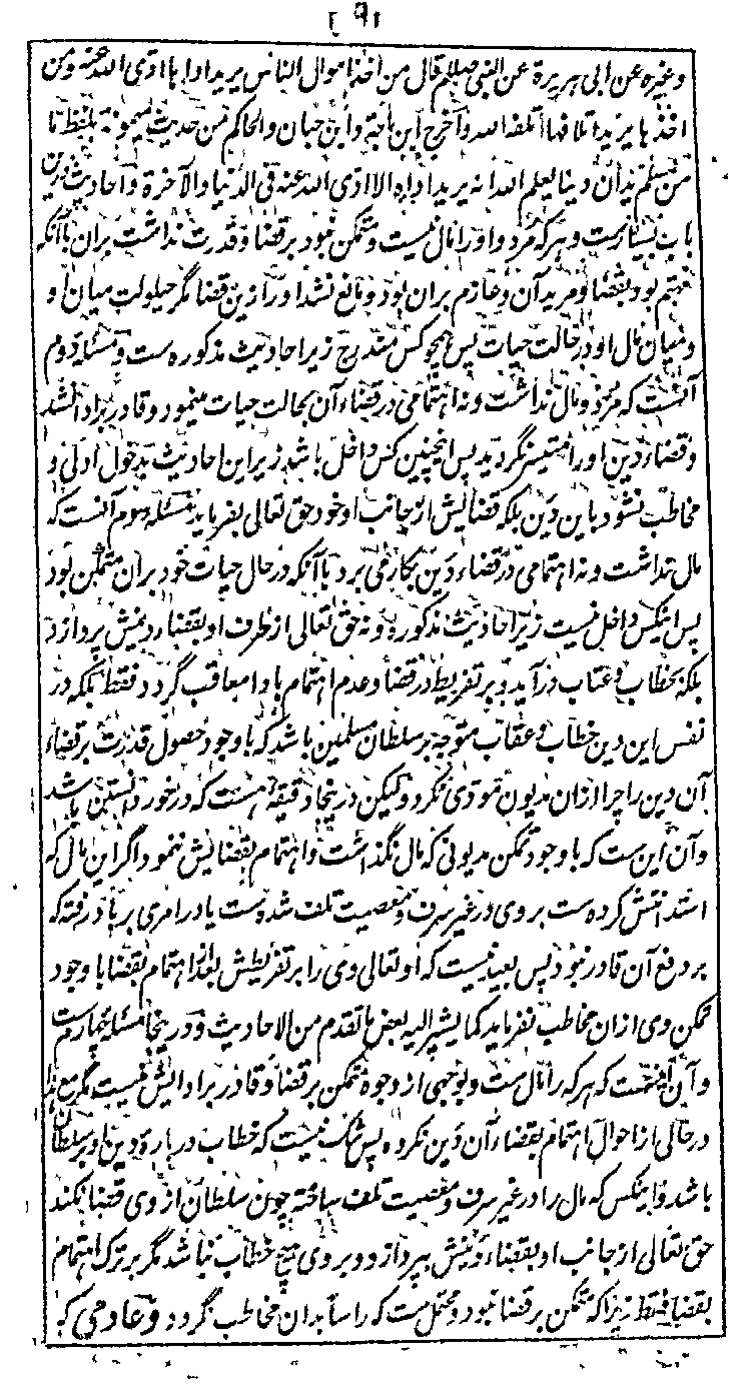 وغیره عن ابی هریرة عن النبی صللم قال من اخذ اموال الناس یرید اداءها ادی الله عنه ومن
اخذها یرید اتلافها اتلفه الله وآخرج ابن ماجة وابن حبان والحاکم من حدیث میمونة بلفظ ما
من مسلم یدان دینا یعلم الله انه یرید اداءه الا ادی الله عنه فی الدنیا والآخرة و احادیث درین
باب بسیارست و هر که مُرد و او را مال نیست و متمکن نبود بر قضا و قدرت نداشت بران باآنکه
مهتم بود بقضا و مرید آن و عازم بران بود و مانع نشد او را ازین قضا مگر حیلولت میان او
و میان مال او در حالت حیات پس همچو کس مندرج زیر احادیث مذکوره ست و مسئله دوم
آنست که مُرد و مال نداشت و نه اهتمامی در قضاء آن بحالت حیات مینمود و قادر بر ادا نشد
و قضاء دین او را متیسر نگردید پس اینچنین کس داخل باشد زیر این احادیث بدخول اولی و
مخاطب نشود باین دین بلکه قضایش از جانب او خود حق تعالی بفرماید مسئله سوم آنست که
مال نداشت و نه اهتمامی در قضاء دین بکار می برد باآنکه در حال حیات خود بران متمکن بود
پس اینکس داخل نیست زیر احادیث مذکوره و نه حق تعالی از طرف او بقضاء دینش پردازد
بلکه بخطاب و عتاب درآید و بر تفریط در قضا و عدم اهتمام بادا معاقب گردد فقط بلکه در
نفس این دین خطاب و عقاب متوجه بر سلطان مسلمین باشد که باوجود حصول قدرت بر قضاء
آن دین را چرا ازان مدیون مودی نکرد ولیکن درینجا دقیقه است که درخور دانستن باشد
وآن این ست که باوجود تمکن مدیونی که مال نگذاشت و اهتمام بقضایش ننمود اگر این مال که
استدانتش کرده ست بر وی در غیر سرف و معصیت تلف شده ست یا در امری بر باد رفته که
بر دفع آن قادر نبود پس بعید نیست که او تعالی وی را بر تفریطش بعد اهتمام بقضا باوجود
تمکن وی ازان مخاطب نفرماید کما یشیر الیه بعض ما تقدم من الاحادیث و درینجا مسئله چهارم ست
وآن اینست که هر که را مال هست و بوجهی از وجوه متمکن بر قضا و قادر بر ادایش نیست مگر مع هذا
در حالی از احوال اهتمام بقضاء آن دین نکرده پس شک نیست که خطاب درباره دین او بر سلطان
باشد و اینکس که مال را در غیر سرف و معصیت تلف ساخته چون سلطان از وی قضا نکند
حق تعالی از جانب او بقضاء دینش بپردازد و بر وی هیچ خطاب نباشد مگر بر ترک اهتمام
بقضا فقط زیراکه متمکن بر قضا نبود و محتمل ست که راسا بدان مخاطب نگردد و عادمی که